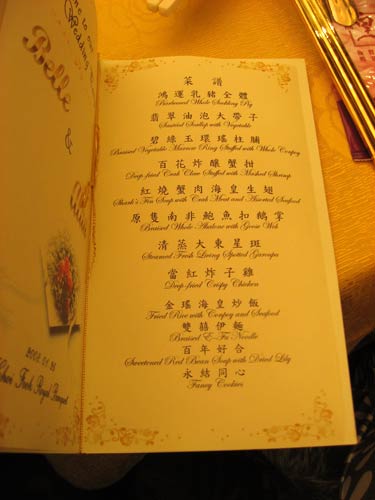 to
Wedding
Belle
&
菜譜
鴻運乳豬全體
Barbecued Whole Suckling Pig
翡翠油泡大帶子
Sautéed Scallop with Vegetable
碧綠玉環瑤柱脯
Braised Vegetable Marrow Ring Stuffed with Whole Conpoy
百花炸釀蟹拑
Deep-fried Crab Claw Stuffed with Mashed Shrimp
紅燒蟹肉海皇生翅
Shark's Fin Soup with Crab Meat and Assorted Seafood
原隻南非鮑魚扣鵝掌
Braised Whole Abalone with Goose Web
清蒸大東星斑
Steamed Fresh Living Spotted Garoupa
當紅炸子雞
Deep-fried Crispy Chicken
金瑤海皇炒飯
Fried Rice with Conpoy and Seafood
雙囍伊麵
Braised E-Fu Noodle
百年好合
Sweetened Red Bean Soup with Dried Lily
永結同心
Fancy Cookies